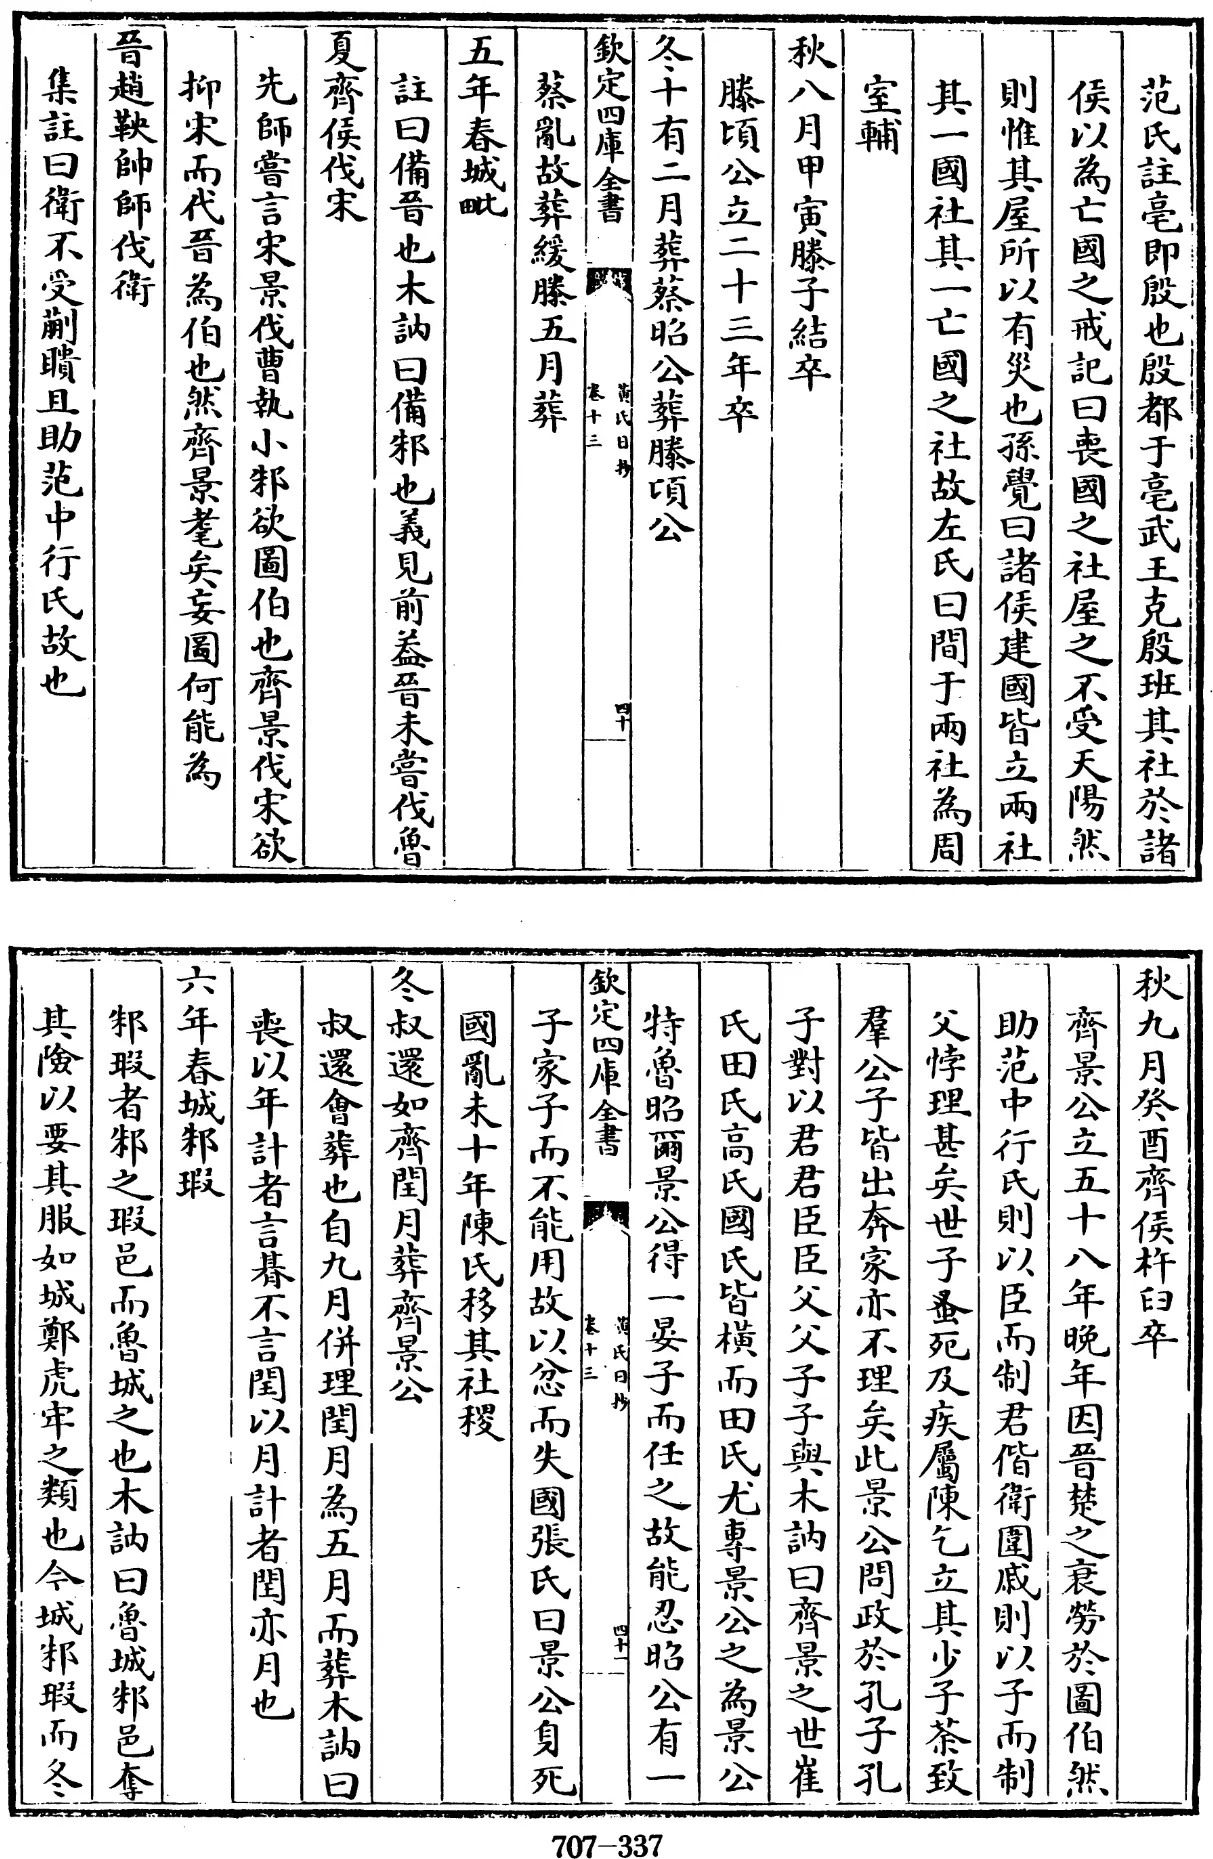 范氏註亳即殷也殷都于亳武王克殷班其社於諸
侯以為亡國之戒記曰喪國之社屋之不受天陽然
則惟其屋所以有災也孫覺曰諸侯建國皆立兩社
其一國社其一亡國之社故左氏曰間于兩社為周
室輔
秋八月甲寅滕子結卒
滕頃公立二十三年卒
冬十有二月葬蔡昭公葬滕頃公
欽定四庫全書
黃氏日抄
卷十三
四十
蔡亂故葬緩滕五月葬
五年春城毗
註曰備晉也木訥曰備邾也義見前葢晉未嘗伐魯
夏齊侯伐宋
先師嘗言宋景伐曹執小邾欲圖伯也齊景伐宋欲
抑宋而代晉為伯也然齊景耄矣妄圖何能為
晉趙鞅帥師伐衛
集註曰衛不受蒯聵且助范中行氏故也
秋九月癸酉齊侯杵臼卒
齊景公立五十八年晚年因晉楚之衰勞於圖伯然
助范中行氏則以臣而制君偕衛圍戚則以子而制
父悖理甚矣世子蚤死及疾屬陳乞立其少子荼致
羣公子皆出奔家亦不理矣此景公問政於孔子孔
子對以君君臣臣父父子子與木訥曰齊景之世崔
氏田氏高氏國氏皆橫而田氏尤專景公之為景公
特魯昭爾景公得一晏子而任之故能忍昭公有一
欽定四庫全書
黃氏日抄
卷十三
四十一
子家子而不能用故以忿而失國張氏曰景公身死
國亂未十年陳氏移其社稷
冬叔還如齊閏月葬齊景公
叔還會葬也自九月併理閏月為五月而葬木訥曰
喪以年計者言朞不言閏以月計者閏亦月也
六年春城邾瑕
邾瑕者邾之瑕邑而魯城之也木訥曰魯城邾邑奪
其險以要其服如城鄭虎牢之類也今城邾瑕而冬
707-337